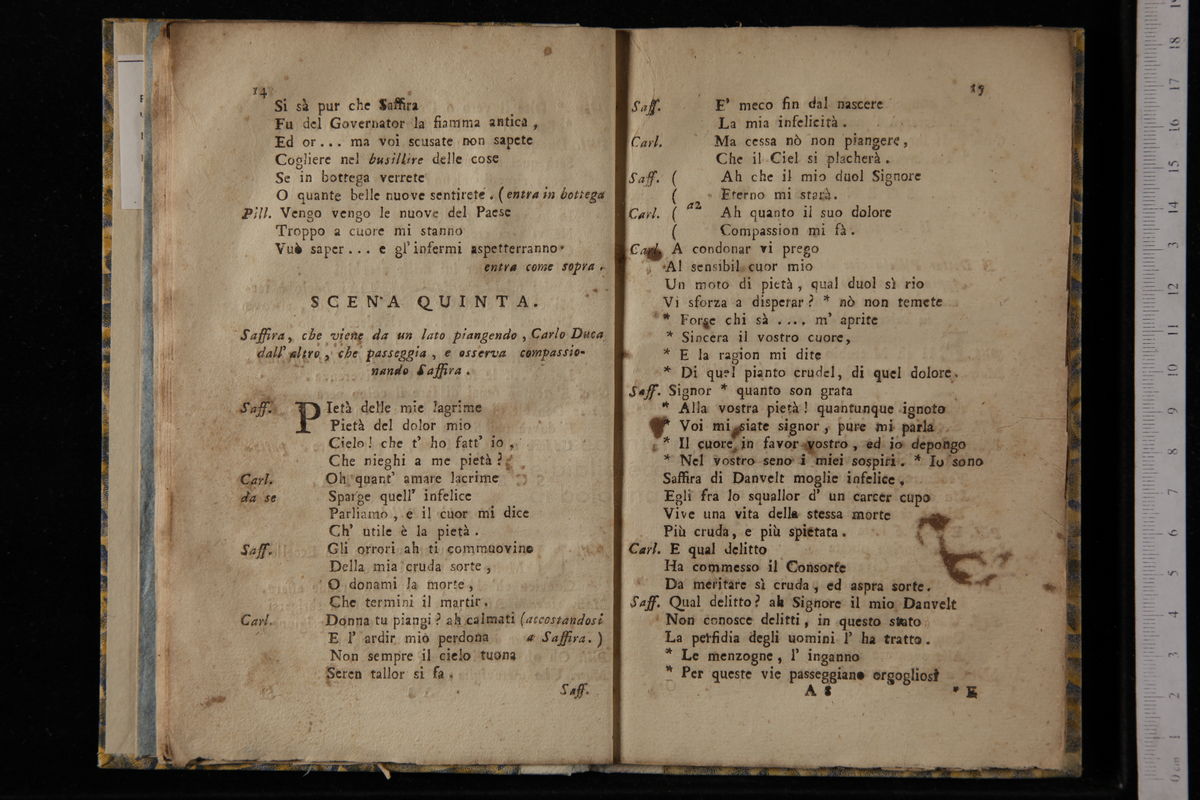 14
Si sà pur che Saffira
Fu del Governator la fiamma antica ,
Ed or . . . ma voi scusate non sapete
Cogliere nel busillire delle cose
Se in bottega verrete
O quante belle nuove sentirete . ( entra in bottega
Pill. Vengo vengo le nuove del Paese
Troppo a cuore mi stanno
Vuò saper . . . e gl' infermi aspetterranno
entra come sopra .
SCENA QUINTA.
Saffira , che viene da un lato piangendo , Carlo Duca
dall' altro , che passeggia , e osserva compassio-
nando Saffira .
Saff. PIetà delle mie lagrime
Pietà del dolor mio
Cielo ! che t' ho fatt' io ,
Che nieghi a me pietà ?
Carl. Oh quant' amare lacrime
da se Sparge quell' infelice
Parliamo , e il cuor mi dice
Ch' utile è la pietà .
Saff. Gli orrori ah ti commuovino
Della mia cruda sorte ,
O donami la morte ,
Che termini il martir .
Carl. Donna tu piangi ? ah calmati (accostandosi
E l' ardir mio perdona a Saffira. )
Non sempre il cielo tuona
Seren tallor si fa .
Saff.
15
Saff. E' meco fin dal nascere
La mia infelicità .
Carl. Ma cessa nò non piangere,
Che il Ciel si placherà .
Saff. ( Ah che il mio duol Signore
( Eterno mi starà.
a2
Carl. ( Ah quanto il suo dolore
( Compassion mi fà .
Carl. A condonar vi prego
Al sensibil cuor mio
Un moto di pietà , qual duol sì rio
Vi sforza a disperar ? * nò non temete
* Forse chi sà . . . . m' aprite
* Sincera il vostro cuore,
* E la ragion mi dite
* Di quel pianto crudel, di quel dolore.
Saff. Signor * quanto son grata
* Alla vostra pietà ! quantunque ignoto
* Voi mi siate signor , pure mi parla
* Il cuore in favor vostro , ed io depongo
* Nel vostro seno i miei sospiri . * Io sono
Saffira di Danvelt moglie infelice ,
Egli fra lo squallor d' un carcer cupo
Vive una vita della stessa morte
Più cruda, e più spietata .
Carl. E qual delitto
Ha commesso il Consorte
Da meritare sì cruda , ed aspra sorte .
Saff. Qual delitto? ah Signore il mio Danvelt
Non conosce delitti , in questo stato
La perfidia degli uomini l' ha tratto .
* Le menzogne , l' inganno
* Per queste vie passeggiano orgogliosi
A 8 * E